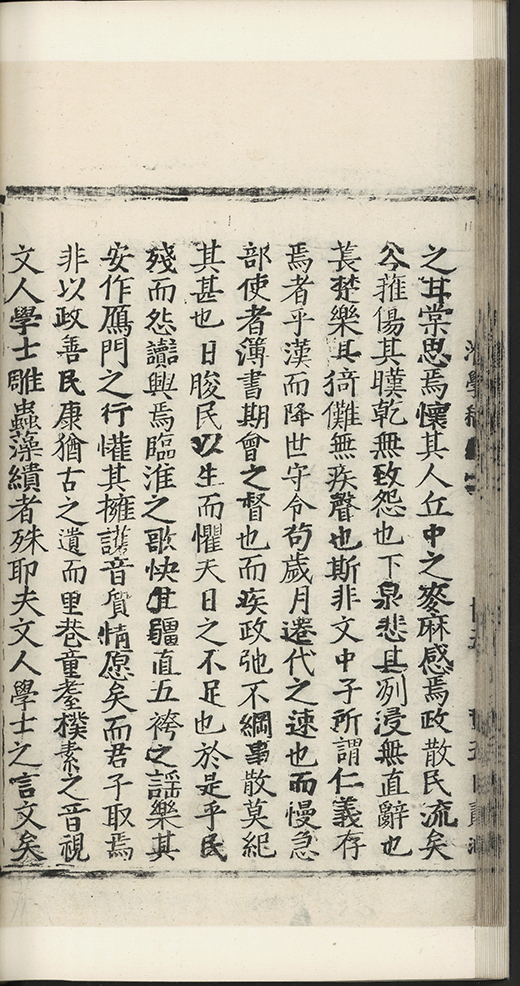 之甘棠思焉懷其人丘中之麥麻感焉政散民流矣
谷蓷傷其暵乾無致怨也下泉悲其冽浸無直辭也
萇楚樂其猗儺無疾聲也斯非文中子所謂仁義存
焉者乎漢而降世守令茍歲月遷代之速也而慢急
部使者簿書期會之督也而疾政弛不綱事散莫紀
其甚也日朘民以生而懼天日之不足也於是乎民
殘而怨讟興焉臨淮之歌快其彊直五袴之謡樂其
安作鴈門之行懽其擁護音質情愿矣而君子取焉
非以政善民康猶古之遺而里巷童耋樸素之音視
文人學士雕蟲藻繢者殊耶夫文人學士之言文矣